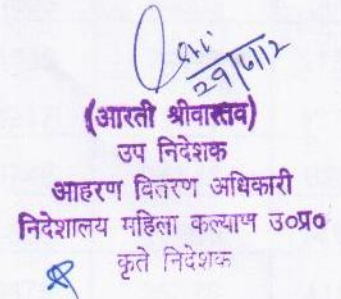 29/6/12
(आरती श्रीवास्तव)
उप निदेशक
आहरण वितरण अधिकारी
निदेशालय महिला कल्याण उ०प्र०
कृते निदेशक